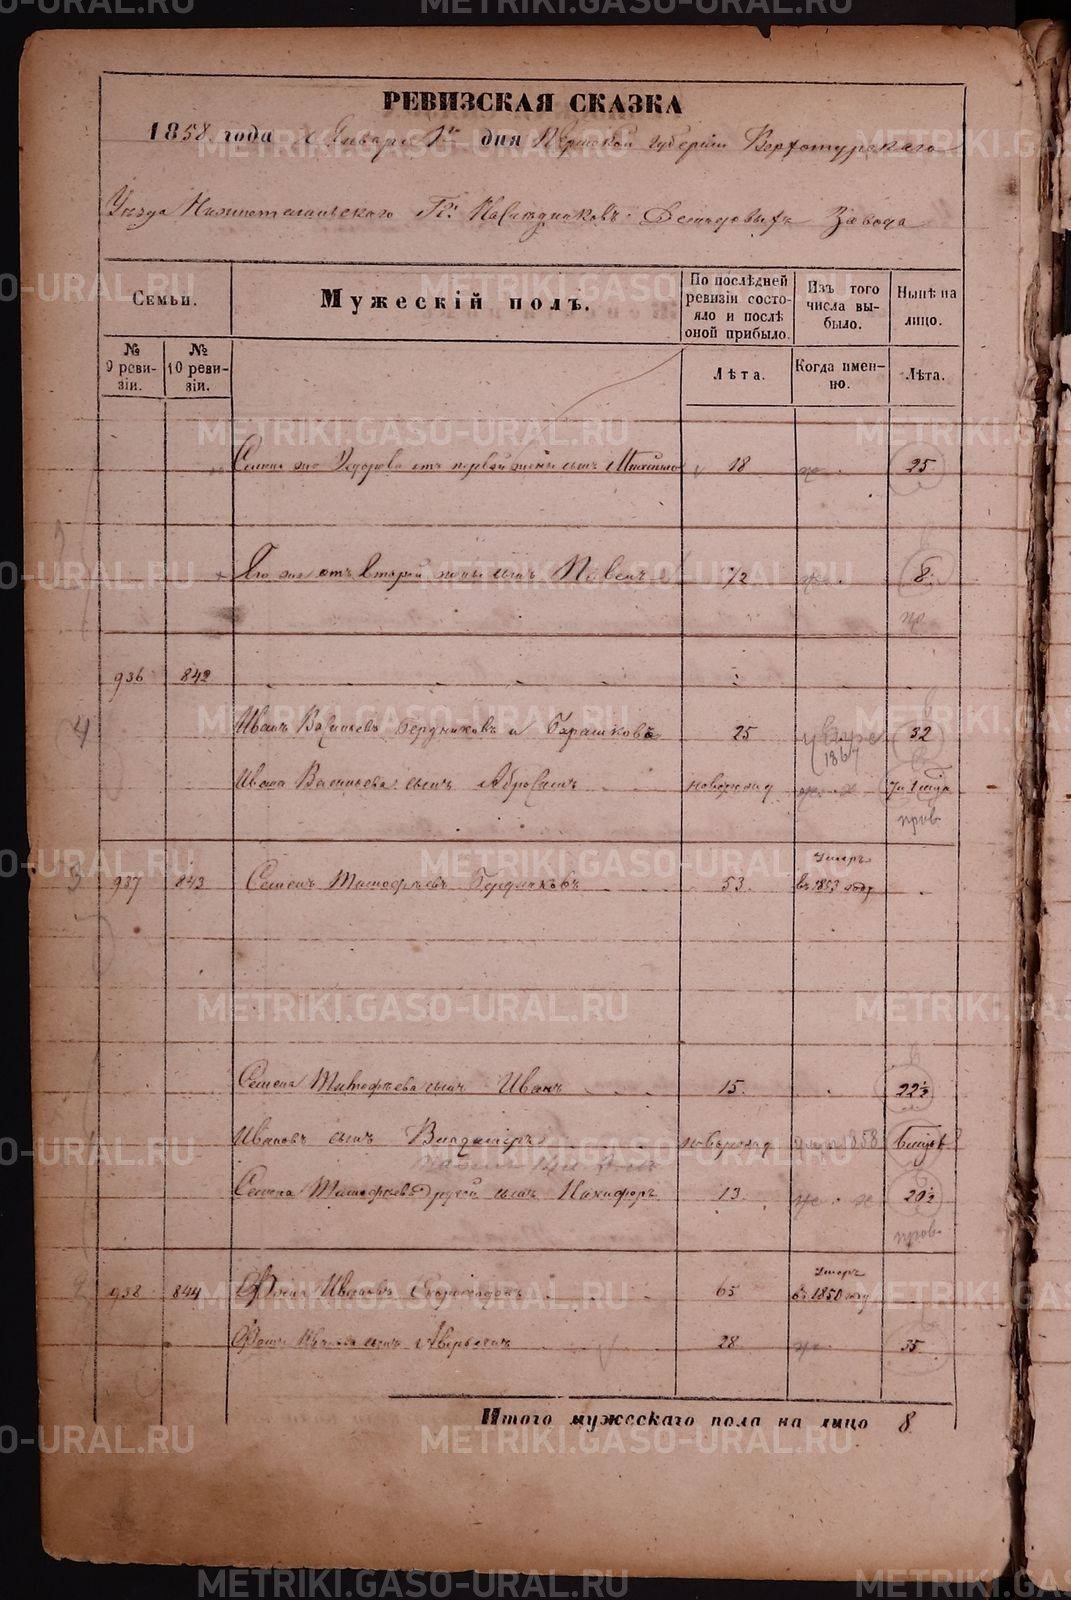 РЕВИЗСКАЯ СКАЗКА
1858 года Января 1го дня Пермской губерніи Верхотурскаго
Уѣзда Нижнотагильскаго Гг. Наслѣдниковъ Демидовыхъ Завода
Семьи.
Мужескій полъ.
По послѣдней ревизіи состояло и послѣ оной прибыло.
Изъ того числа выбыло.
Нынѣ на лицо.
№ 9 ревизіи.
№ 10 ревизіи.
Лѣта.
Когда именно.
Лѣта.
отъ первой жены сынъ Михайло 18 25
Его же отъ второй жены сынъ Павелъ 1/2 8
936 842
4 Иванъ Васильевъ Бердниковъ и Гарашковъ 25 1864 32
Ивана Васильева сынъ Абросимъ новорожд
пров
3 937 843 Семенъ Тимофѣевъ Бердниковъ 53 Умеръ въ 1853 году
Семена Тимофѣева сынъ Иванъ 15 22½
Ивановъ сынъ Владимиръ новорожд 1858
Семена Тимофѣева другой сынъ Никифоръ 13 20½
пров
2 938 844 Иванов 65 Умеръ въ 1850 году
сынъ Аверьянъ 28 35
Итого мужескаго пола на лицо 8
METRIKI.GASO-URAL.RU